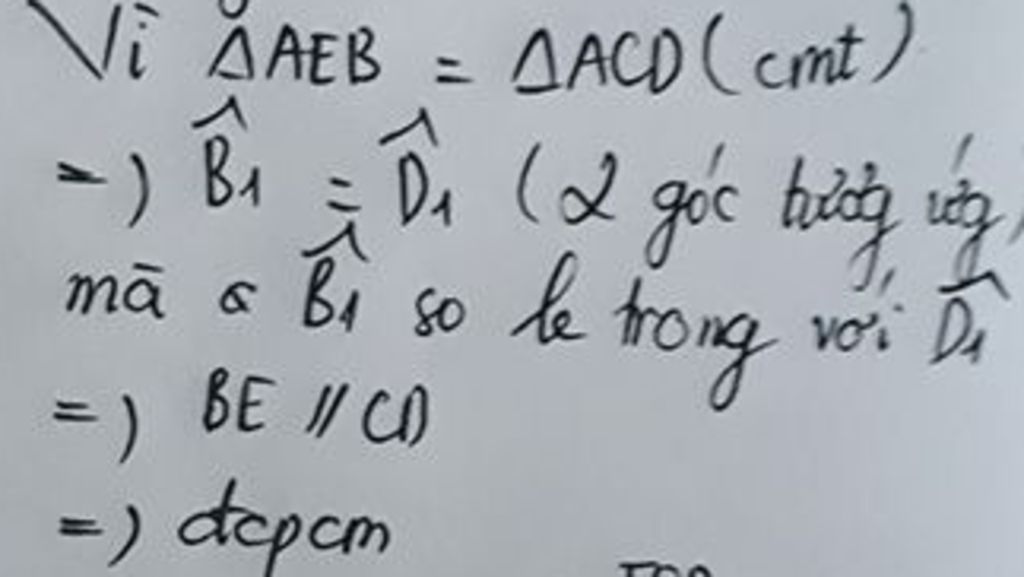 Vì ΔAEB = ΔACD (cmt)
=) B̂1 = D̂1 (2 góc tương ứng)
mà B̂1 so le trong với D̂1
=) BE // CD
=) đcpcm